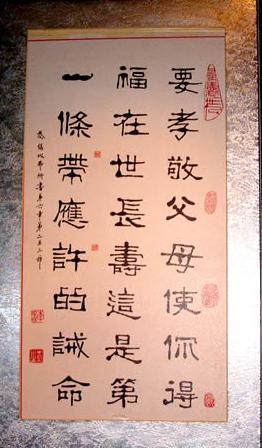 要孝敬父母使你得
福在世長壽這是第
一條帶應許的誡命